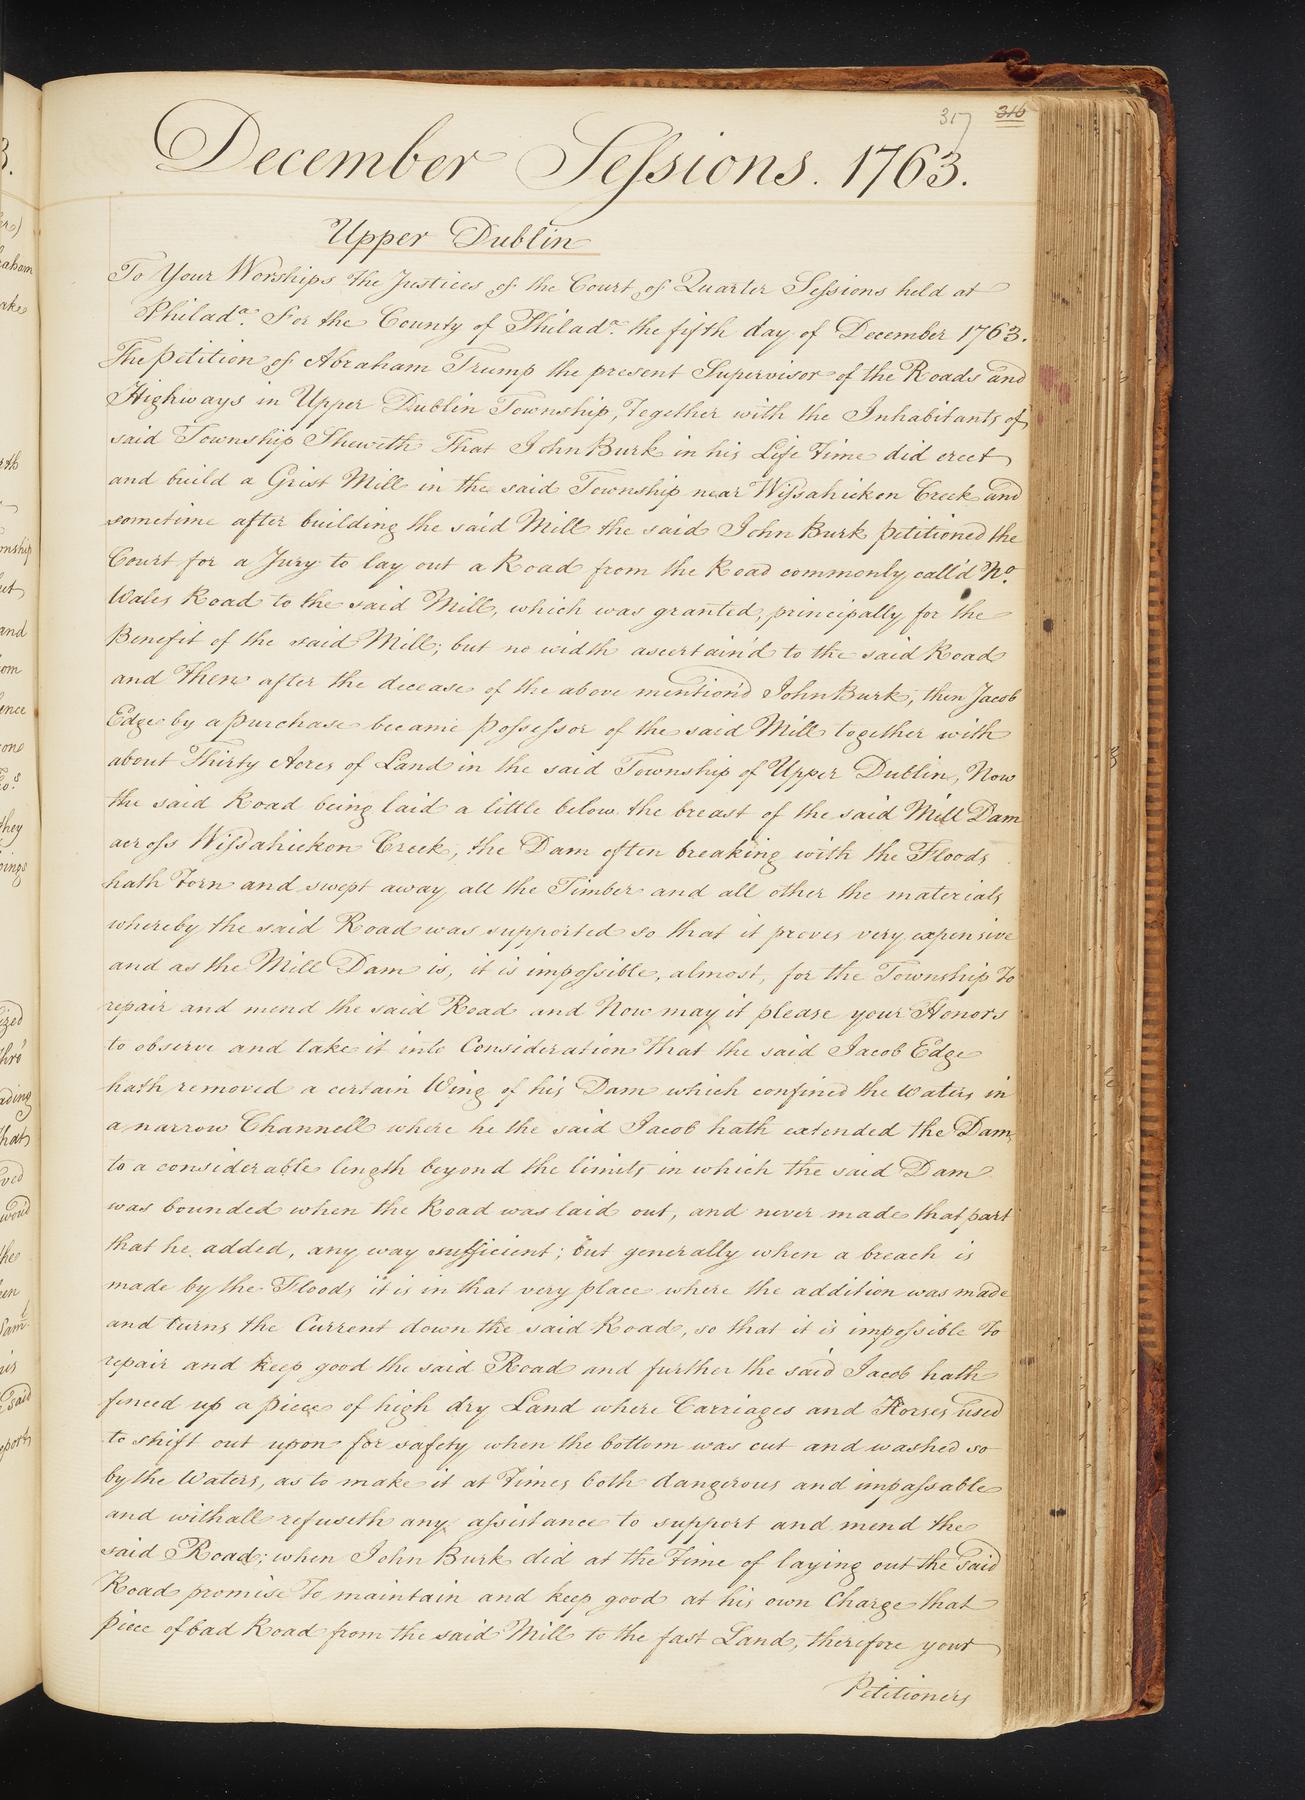 317 316
December Sessions. 1763.
Upper Dublin
To Your Worships the Justices of the Court of Quarter Sessions held at
Philada. For the County of Philada. the fifth day of December 1763.
The petition of Abraham Trump the present Supervisor of the Roads and
Highways in Upper Dublin Township, together with the Inhabitants of
said Township Sheweth That John Burk in his Life Time did erect
and build a Grist Mill in the said Township near Wissahickon Creek and
sometime after building the said Mill the said John Burk petitioned the
Court for a Jury to lay out a Road from the Road commonly call'd No.
Wales Road to the said Mill, which was granted, principally for the
Benefit of the said Mill; but no width ascertain'd to the said Road
and Then after the decease of the above mention'd John Burk, then Jacob
Edge by a purchase became possessor of the said Mill together with
about Thirty Acres of Land in the said Township of Upper Dublin, Now
the said Road being laid a little below the breast of the said Mill Dam
across Wissahickon Creek, the Dam often breaking with the Floods
hath Torn and swept away all the Timber and all other the materials
whereby the said Road was supported so that it proves very expensive
and as the Mill Dam is, it is impossible, almost, for the Township To
repair and mend the said Road and Now may it please your Honors
to observe and take it into Consideration That the said Jacob Edge
hath removed a certain Wing of his Dam which confined the Waters in
a narrow Channell where he the said Jacob hath extended the Dam
to a considerable length beyond the limits in which the said Dam
was bounded when the Road was laid out, and never made that part
that he added, any way sufficient; but generally when a breach is
made by the Floods it is in that very place where the addition was made
and turns the Current down the said Road, so that it is impossible To
repair and keep good the said Road and further the said Jacob hath
fenced up a piece of high dry Land where Carriages and Horses used
to shift out upon for safety when the bottom was cut and washed so
by the Waters, as to make it at Times both dangerous and impassable
and withall refuseth any assistance to support and mend the
said Road; when John Burk did at the Time of laying out the said
Road promise To maintain and keep good at his own Charge that
piece of bad Road from the said Mill to the fast Land, therefore your
Petitioners